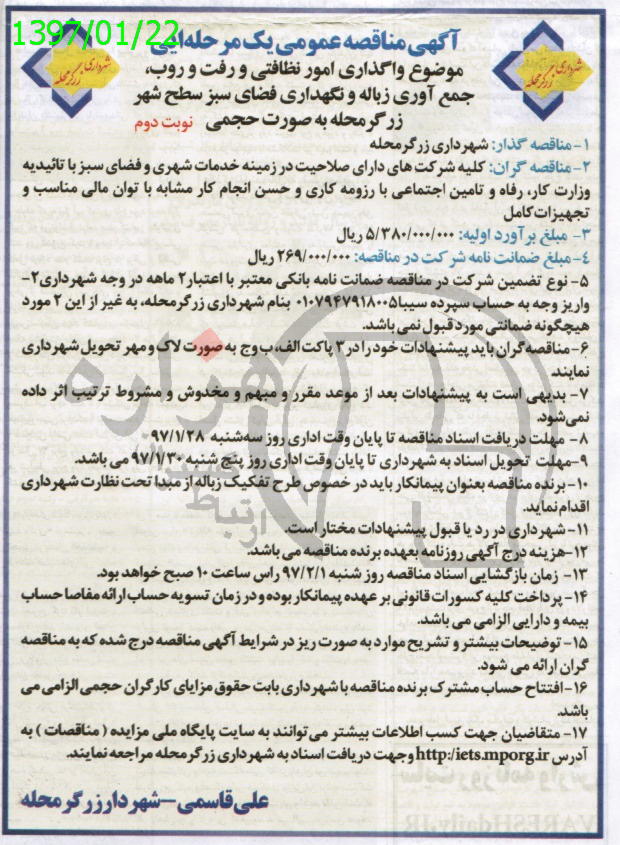 1397/01/22
آگهی مناقصه عمومی یک مرحله‌ایی
موضوع واگذاری امور نظافتی و رفت و روب،
جمع آوری زباله و نگهداری فضای سبز سطح شهر
زرگرمحله به صورت حجمی نوبت دوم
شهرداری زرگرمحله
شهرداری زرگرمحله
۱- مناقصه گذار: شهرداری زرگرمحله
۲- مناقصه گران: کلیه شرکت های دارای صلاحیت در زمینه خدمات شهری و فضای سبز با تائیدیه
وزارت کار، رفاه و تامین اجتماعی با رزومه کاری و حسن انجام کار مشابه با توان مالی مناسب و
تجهیزات کامل
۳- مبلغ برآورد اولیه: ۵/۳۸۰/۰۰۰/۰۰۰ ریال
۴- مبلغ ضمانت نامه شرکت در مناقصه: ۲۶۹/۰۰۰/۰۰۰ ریال
۵- نوع تضمین شرکت در مناقصه ضمانت نامه بانکی معتبر با اعتبار ۲ ماهه در وجه شهرداری ۲-
واریز وجه به حساب سپرده سیبا ۰۱۰۷۹۴۷۹۱۸۰۰۵ بنام شهرداری زرگرمحله، به غیر از این ۲ مورد
هیچگونه ضمانتی مورد قبول نمی باشد.
۶- مناقصه گران باید پیشنهادات خود را در ۳ پاکت الف، ب و ج به صورت لاک و مهر تحویل شهرداری
نمایند
۷- بدیهی است به پیشنهادات بعد از موعد مقرر و مبهم و مخدوش و مشروط ترتیب اثر داده
نمی‌شود.
۸- مهلت دریافت اسناد مناقصه تا پایان وقت اداری روز سه‌شنبه ۹۷/۱/۲۸
۹- مهلت تحویل اسناد به شهرداری تا پایان وقت اداری روز پنج شنبه ۹۷/۱/۳۰ می باشد.
۱۰- برنده مناقصه بعنوان پیمانکار باید در خصوص طرح تفکیک زباله از مبدا تحت نظارت شهرداری
اقدام نماید.
۱۱- شهرداری در رد یا قبول پیشنهادات مختار است.
۱۲- هزینه درج آگهی روزنامه بعهده برنده مناقصه می باشد.
۱۳- زمان بازگشایی اسناد مناقصه روز شنبه ۹۷/۲/۱ راس ساعت ۱۰ صبح خواهد بود.
۱۴- پرداخت کلیه کسورات قانونی بر عهده پیمانکار بوده و در زمان تسویه حساب ارائه مفاصا حساب
بیمه و دارایی الزامی می باشد.
۱۵- توضیحات بیشتر و تشریح موارد به صورت ریز در شرایط آگهی مناقصه درج شده که به مناقصه
گران ارائه می شود.
۱۶- افتتاح حساب مشترک برنده مناقصه با شهرداری بابت حقوق مزایای کارگران حجمی الزامی می
باشد.
۱۷- متقاضیان جهت کسب اطلاعات بیشتر می توانند به سایت پایگاه ملی مزایده (مناقصات) به
آدرس http:/iets.mporg.ir وجهت دریافت اسناد به شهرداری زرگرمحله مراجعه نمایند.
علی قاسمی - شهردار زرگرمحله
هزاره